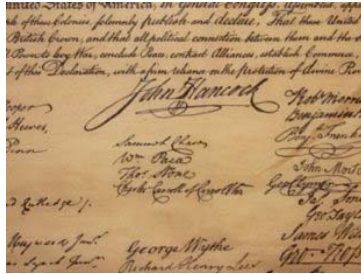 United States of America, in General Congress, Assembled, app
of these Colonies, solemnly publish and declare, That these Unite
British Crown, and that all political connection between them and the
Power to levy War, conclude Peace, contract Alliances, establish Commerce
of this Declaration, with a firm reliance on the protection of divine Pr
John Hancock
Hooper
Hewes,
Penn
Samuel Chase
Wm Paca
Thos Stone
Charles Carroll of Carrollton
Robt Morris
Benjamin
Benj Frank
John Morto
Geo Clymer
Jas Smi
Geo Tay
James Wil
Geo Ross
Rutledge
Heyward Junr
Lynch Junr
George Wythe
Richard Henry Lee